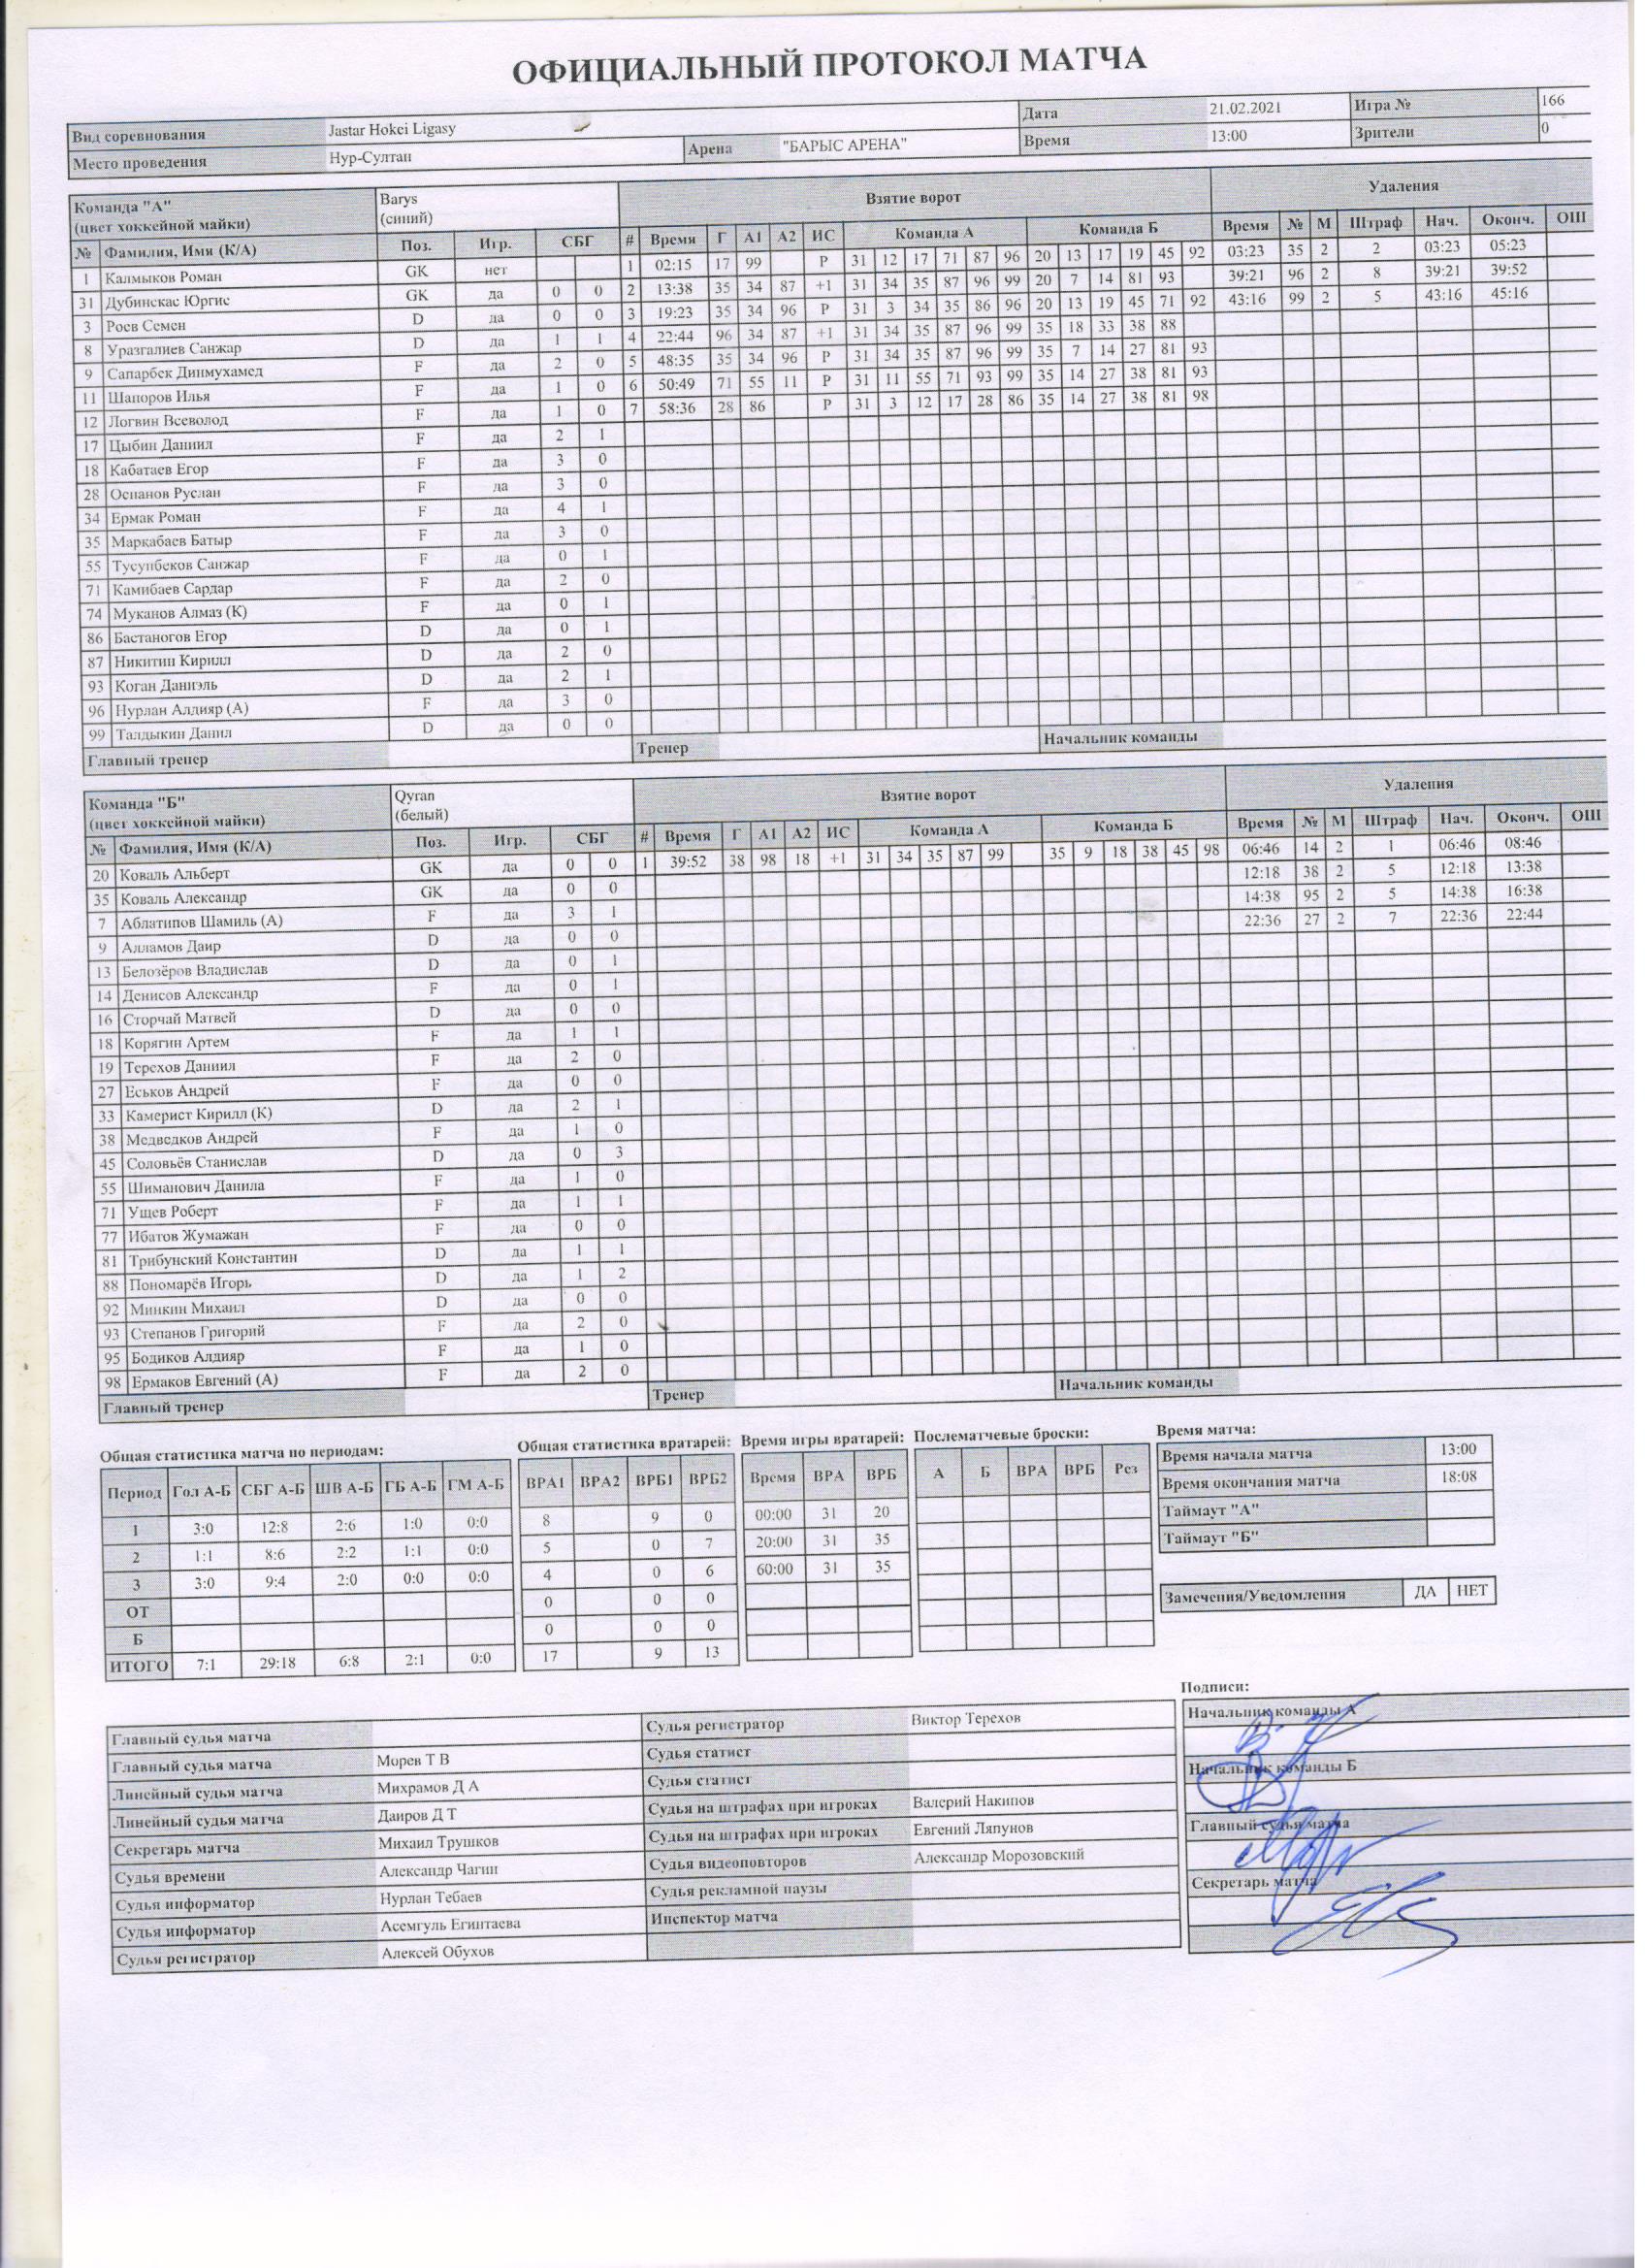 ОФИЦИАЛЬНЫЙ ПРОТОКОЛ МАТЧА
Вид соревнования Jastar Hokei Ligasy Дата 21.02.2021 Игра № 166
Место проведения Нур-Султан Арена "БАРЫС АРЕНА" Время 13:00 Зрители 0
Команда "А" (цвет хоккейной майки) Barys (синий) Взятие ворот Удаления
№ Фамилия, Имя (К/А) Поз. Игр. СБГ # Время Г А1 А2 ИС Команда А Команда Б Время № М Штраф Нач. Оконч. ОШ
1 Калмыков Роман GK нет 1 02:15 17 99 Р 31 12 17 71 87 96 20 13 17 19 45 92 03:23 35 2 2 03:23 05:23
31 Дубинскас Юргис GK да 0 0 2 13:38 35 34 87 +1 31 34 35 87 96 99 20 7 14 81 93 39:21 96 2 8 39:21 39:52
3 Роев Семен D да 0 0 3 19:23 35 34 96 Р 31 3 34 35 86 96 20 13 19 45 71 92 43:16 99 2 5 43:16 45:16
8 Уразгалиев Санжар D да 1 1 4 22:44 96 34 87 +1 31 34 35 87 96 99 35 18 33 38 88
9 Сапарбек Динмухамед F да 2 0 5 48:35 35 34 96 Р 31 34 35 87 96 99 35 7 14 27 81 93
11 Шапоров Илья F да 1 0 6 50:49 71 55 11 Р 31 11 55 71 93 99 35 14 27 38 81 93
12 Логвин Всеволод F да 1 0 7 58:36 28 86 Р 31 3 12 17 28 86 35 14 27 38 81 98
17 Цыбин Даниил F да 2 1
18 Кабатаев Егор F да 3 0
28 Оспанов Руслан F да 3 0
34 Ермак Роман F да 4 1
35 Маркабаев Батыр F да 3 0
55 Тусупбеков Санжар F да 0 1
71 Камибаев Сардар F да 2 0
74 Муканов Алмаз (К) F да 0 1
86 Бастаногов Егор D да 0 1
87 Никитин Кирилл D да 2 0
93 Коган Даниэль D да 2 1
96 Нурлан Алдияр (А) F да 3 0
99 Талдыкин Данил D да 0 0
Главный тренер Тренер Начальник команды
Команда "Б" (цвет хоккейной майки) Qyran (белый) Взятие ворот Удаления
№ Фамилия, Имя (К/А) Поз. Игр. СБГ # Время Г А1 А2 ИС Команда А Команда Б Время № М Штраф Нач. Оконч. ОШ
20 Коваль Альберт GK да 0 0 1 39:52 38 98 18 +1 31 34 35 87 99 35 9 18 38 45 98 06:46 14 2 1 06:46 08:46
35 Коваль Александр GK да 0 0 12:18 38 2 5 12:18 13:38
7 Аблатипов Шамиль (А) F да 3 1 14:38 95 2 5 14:38 16:38
9 Алламов Даир D да 0 0 22:36 27 2 7 22:36 22:44
13 Белозёров Владислав D да 0 1
14 Денисов Александр F да 0 1
16 Сторчай Матвей D да 0 0
18 Корягин Артем F да 1 1
19 Терехов Даниил F да 2 0
27 Еськов Андрей F да 0 0
33 Камерист Кирилл (К) D да 2 1
38 Медведков Андрей F да 1 0
45 Соловьёв Станислав D да 0 3
55 Шиманович Данила F да 1 0
71 Ущев Роберт F да 1 1
77 Ибатов Жумажан F да 0 0
81 Трибунский Константин D да 1 1
88 Пономарёв Игорь D да 1 2
92 Минкин Михаил D да 0 0
93 Степанов Григорий F да 2 0
95 Бодиков Алдияр F да 1 0
98 Ермаков Евгений (А) F да 2 0
Главный тренер Тренер Начальник команды
Общая статистика матча по периодам: Общая статистика вратарей: Время игры вратарей: Послематчевые броски: Время матча:
Период Гол А-Б СБГ А-Б ШВ А-Б ГБ А-Б ГМ А-Б ВРА1 ВРА2 ВРБ1 ВРБ2 Время ВРА ВРБ А Б ВРА ВРБ Рез Время начала матча 13:00
Время окончания матча 18:08
1 3:0 12:8 2:6 1:0 0:0 8 9 0 00:00 31 20 Таймаут "А"
2 1:1 8:6 2:2 1:1 0:0 5 0 7 20:00 31 35 Таймаут "Б"
3 3:0 9:4 2:0 0:0 0:0 4 0 6 60:00 31 35
ОТ 0 0 0 Замечения/Уведомления ДА НЕТ
Б 0 0 0
ИТОГО 7:1 29:18 6:8 2:1 0:0 17 9 13
Подписи:
Главный судья матча Судья регистратор Виктор Терехов Начальник команды А
Главный судья матча Морев Т В Судья статист
Линейный судья матча Михрамов Д А Судья статист Начальник команды Б
Линейный судья матча Даиров Д Т Судья на штрафах при игроках Валерий Накипов
Секретарь матча Михаил Трушков Судья на штрафах при игроках Евгений Ляпунов Главный судья матча
Судья времени Александр Чагин Судья видеоповторов Александр Морозовский
Судья информатор Нурлан Тебаев Судья рекламной паузы Секретарь матча
Судья информатор Асемгуль Егинтаева Инспектор матча
Судья регистратор Алексей Обухов